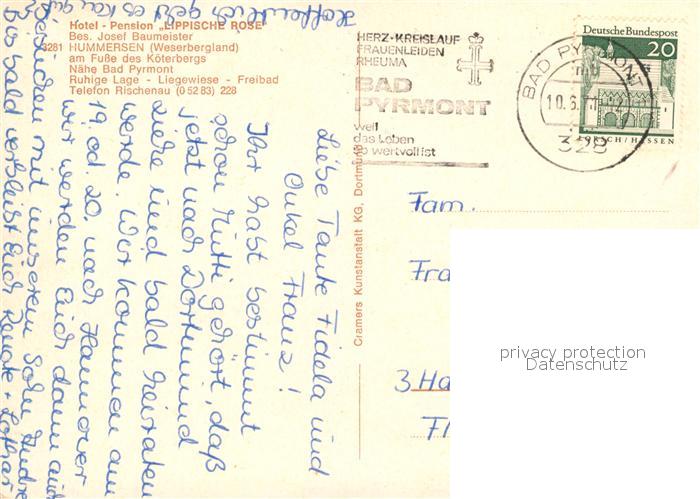 Hotel - Pension „LIPPISCHE ROSE"
Bes. Josef Baumeister
3281 HUMMERSEN (Weserbergland)
am Fuße des Köterbergs
Nähe Bad Pyrmont
Ruhige Lage - Liegewiese - Freibad
Telefon Rischenau (0 52 83) 228
HERZ-KREISLAUF
FRAUENLEIDEN
RHEUMA
BAD
PYRMONT
weil
das Leben
so wertvoll ist
BAD PYRMONT
mb
10.6.71
328
Deutsche Bundespost
20
LORSCH/HESSEN
Cramers Kunstanstalt KG, Dortmund
Liebe Tante Fidela und
Onkel Franz!
Ihr habt bestimmt
schon Mutti gehört, daß
jetzt nach Dortmund
ziehe und bald heiraten
werde. Wir kommen am
19. od. 20. nach Hannover
wir werden Euch dann auch
besuchen mit unserem Sohn André
Bis bald verbleibt Euch Renate + Lothar
Hoffentlich geht es
Fam.
Fra
3 Ha
Fl
privacy protection
Datenschutz